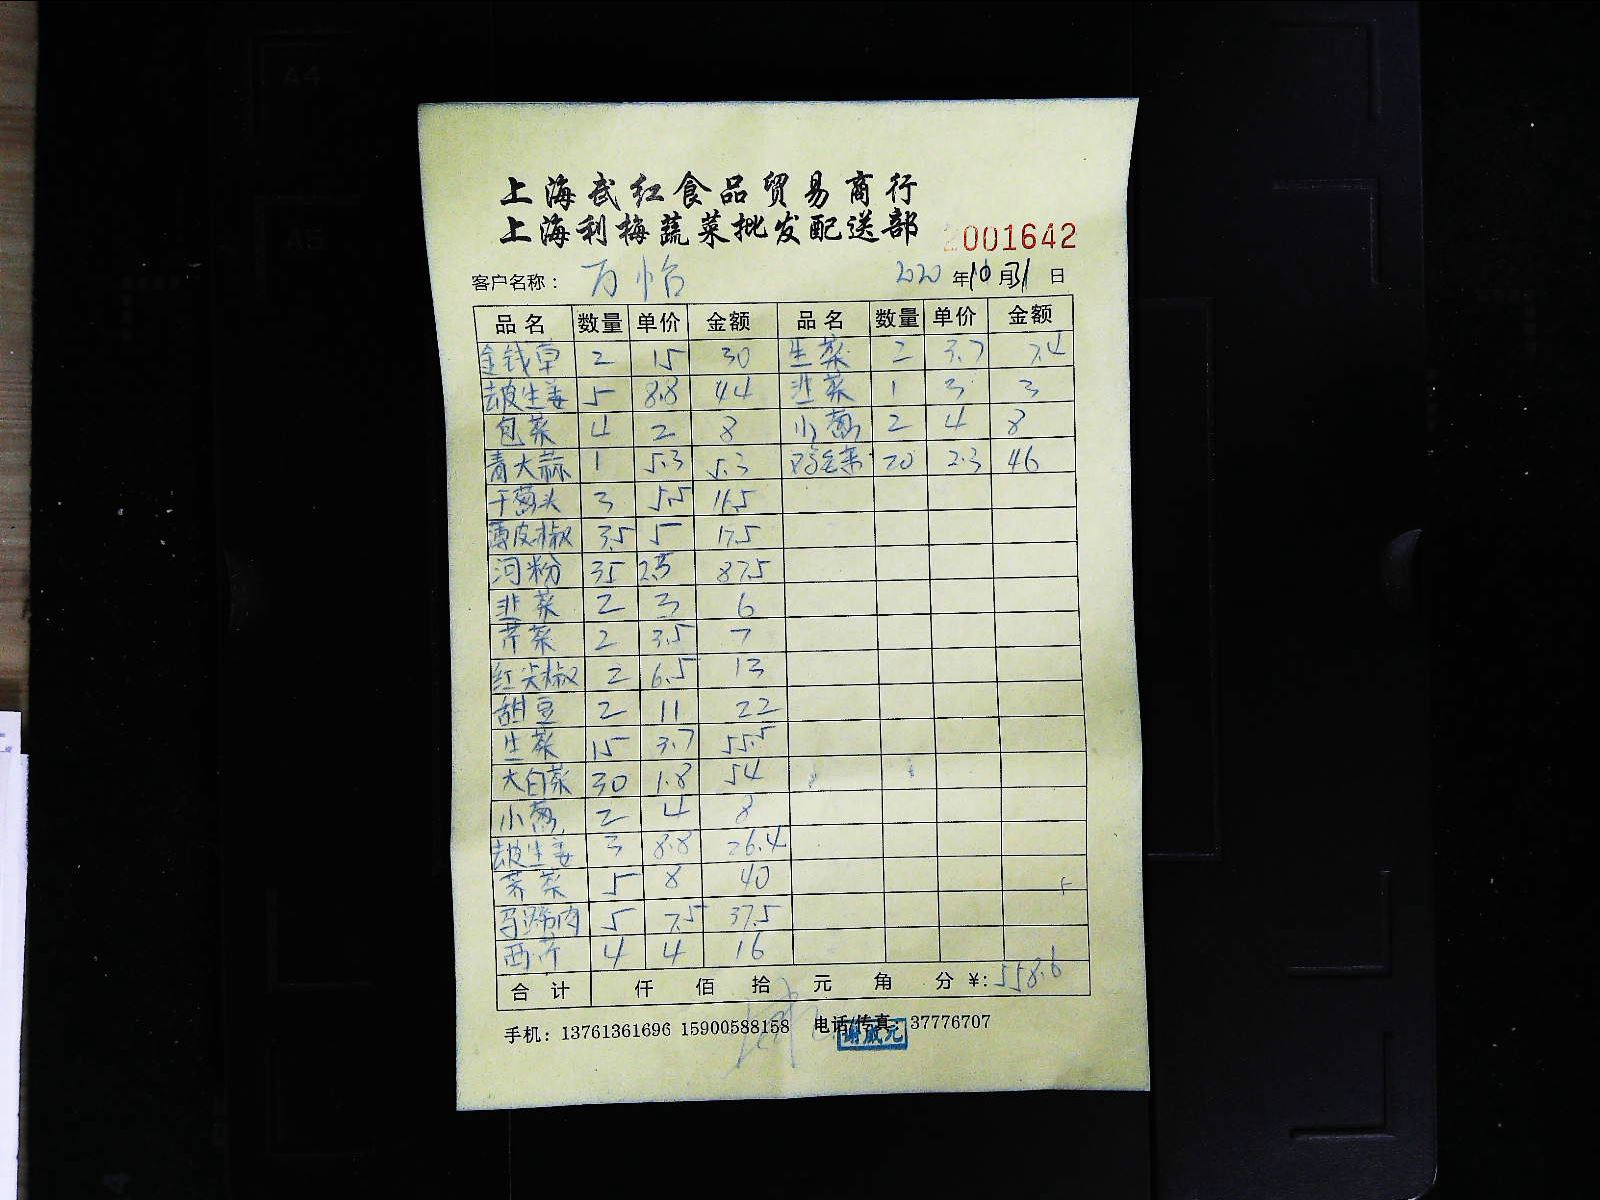 A4
A5
上海武红食品贸易商行
上海利梅蔬菜批发配送部 2001642
客户名称： 万怡 2020 年 10 月 31 日
品名 数量 单价 金额 品名 数量 单价 金额
金钱草 2 15 30 生菜 2 3.7 7.4
去皮生姜 5 8.8 44 韭菜 1 3 3
包菜 4 2 8 小葱 2 4 8
青大蒜 1 5.3 5.3 鸡毛菜 20 2.3 46
干葱头 3 5.5 16.5
薄皮椒 3.5 5 17.5
河粉 35 2.5 87.5
韭菜 2 3 6
芹菜 2 3.5 7
红尖椒 2 6.5 13
甜豆 2 11 22
生菜 15 3.7 55.5
大白菜 30 1.8 54
小葱 2 4 8
去皮生姜 3 8.8 26.4
荠菜 5 8 40
马蹄肉 5 7.5 37.5
西芹 4 4 16
合计 仟 佰 拾 元 角 分 ¥: 558.6
手机：13761361696 15900588158 电话/传真：37776707